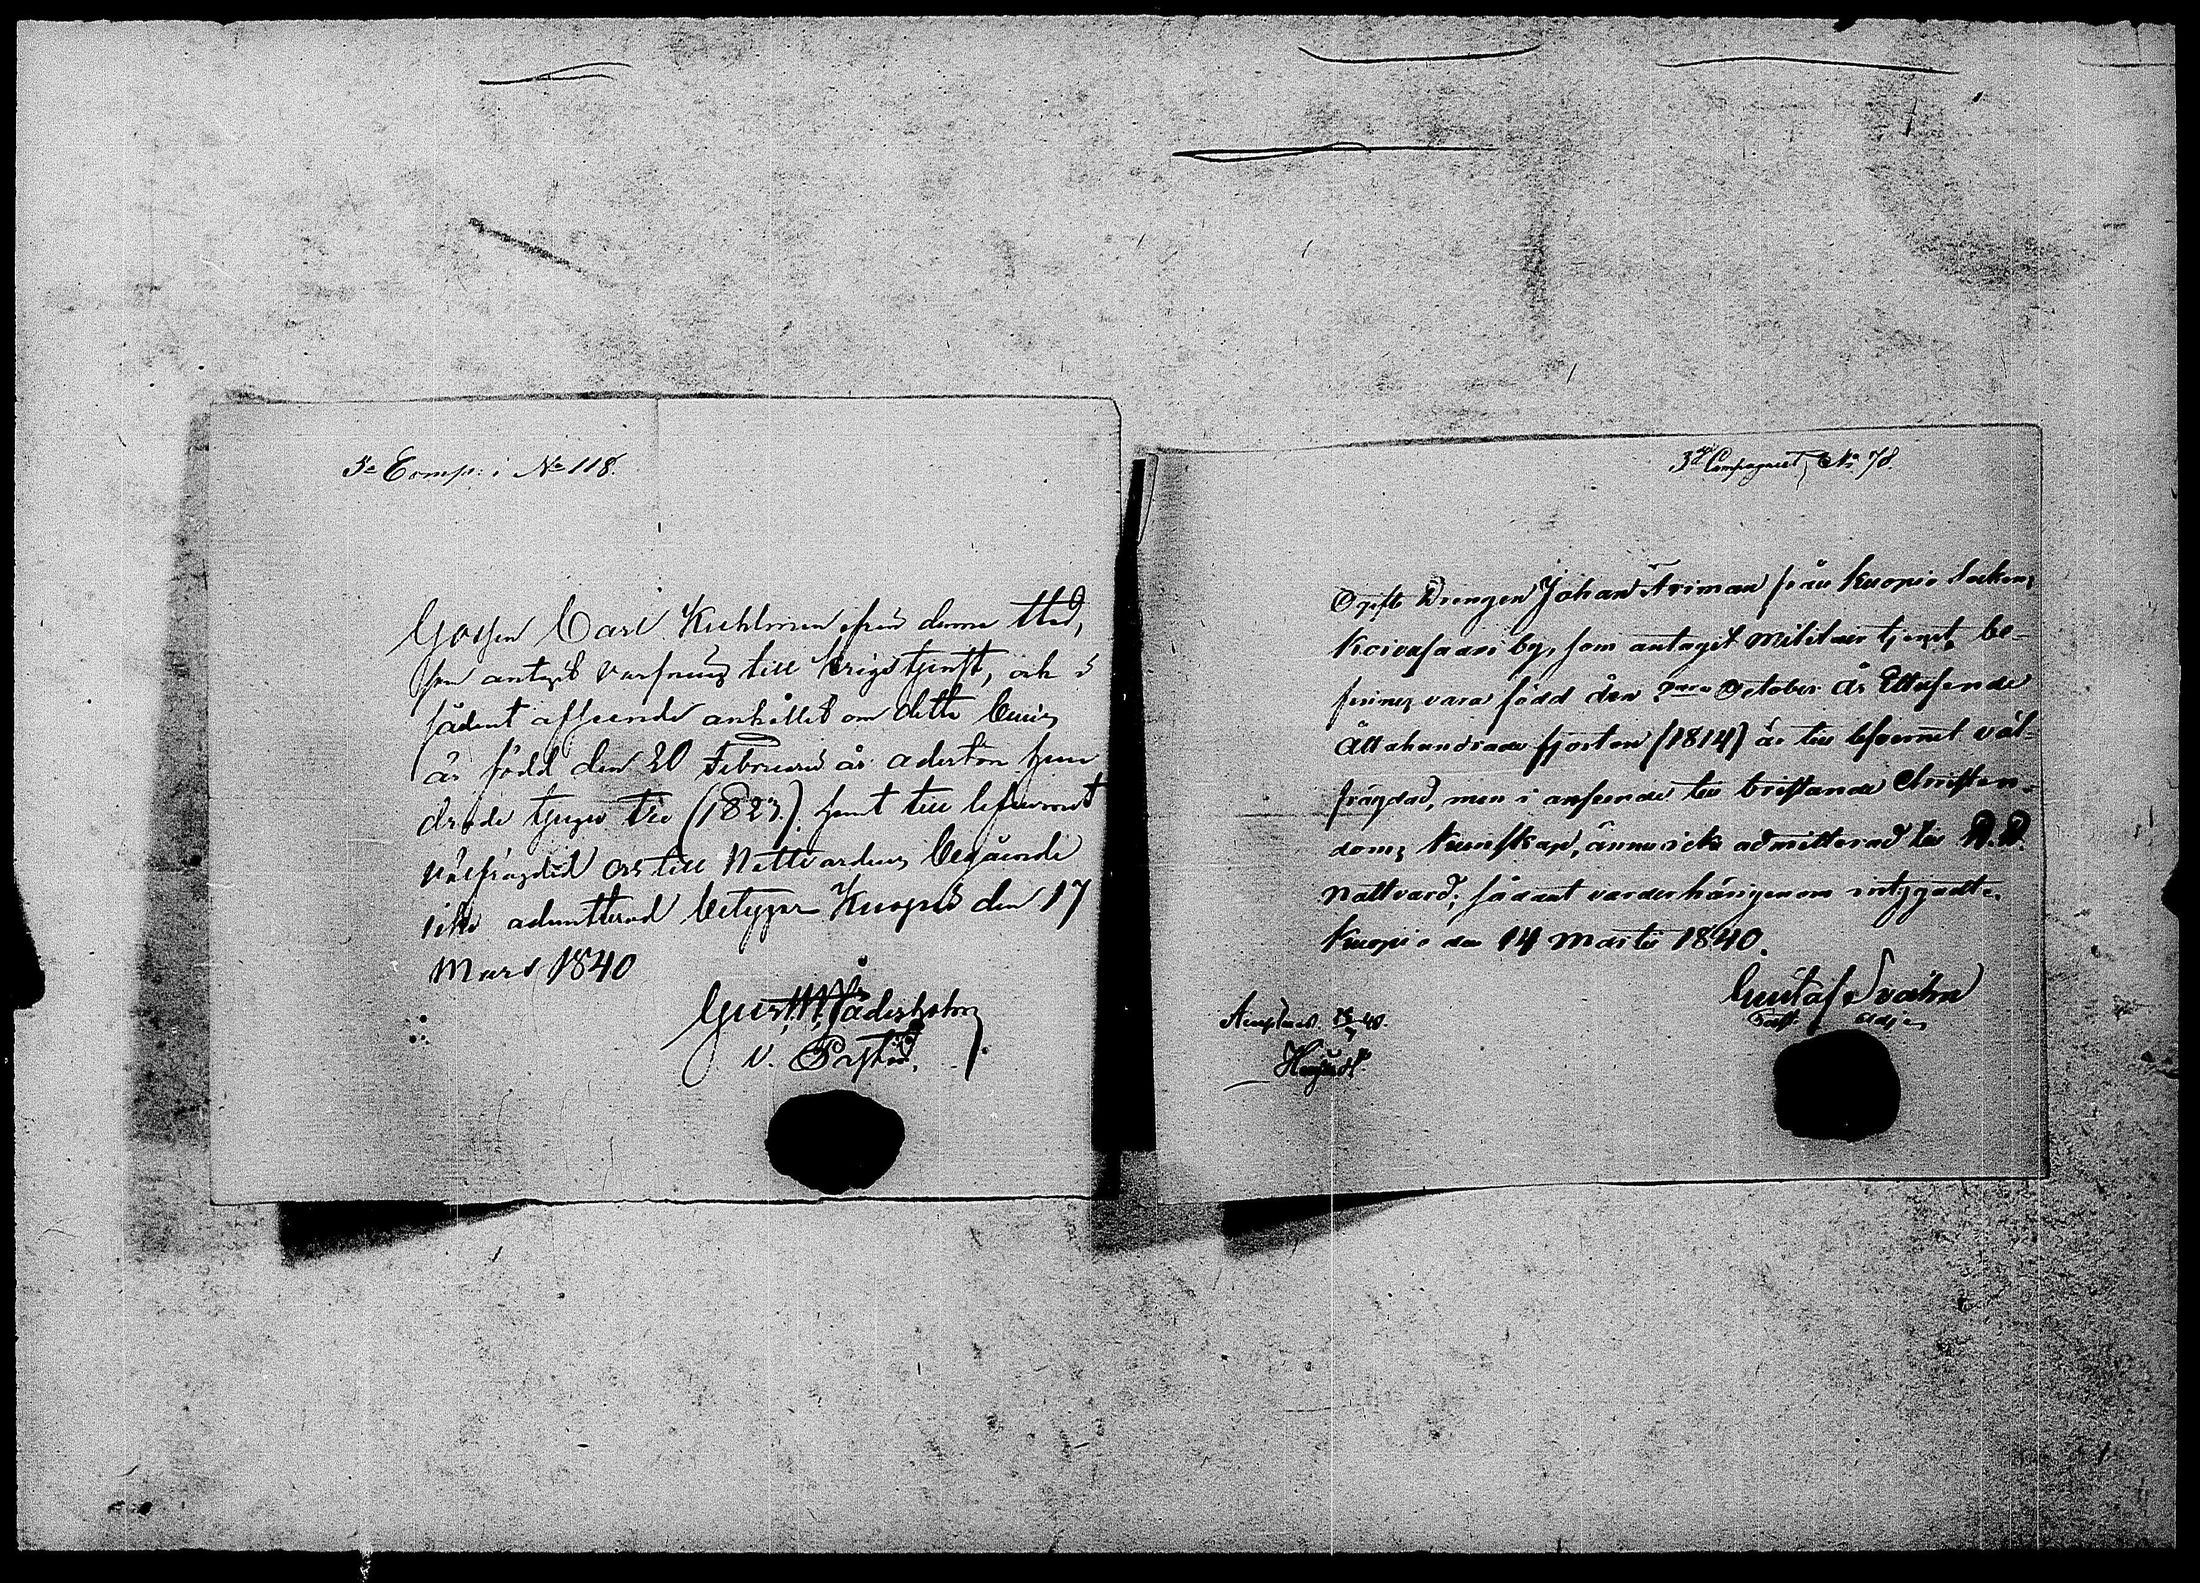 3e Comp: i No 118.
Gossen Carl Kuhlman ifrån denna Stad,
som antagit varfning till krigstjenst, och i
sådant afseende anhållit om detta bevis
är född den 20 Februarii år aderton hun
drade tjugu tre (1823.) samt till lefvernet
välfrägdad och till Nattvardens begående
icke admitterad betygar Kuopio den 17
Mars 1840
Gust. W. Jäderholm
v. Pastor.
3dje Compagniet, No 78.
Ogifte Drengen Johan Friman från Kuopio Socken,
Koivusaari by, som antagit militair tjenst, be-
finnes vara född den October År Ettusende
Åttahundrade fjorton (1814) är till lefvernet väl-
frägdad, men i anseende till bristande Christen-
doms kunskap, ännu icke admitterad till H. H.
Nattvard; sådant varder härigenom intygadt.
Kuopio den 14 Martii 1840.
Gustaf Svahn
Past. Adj.